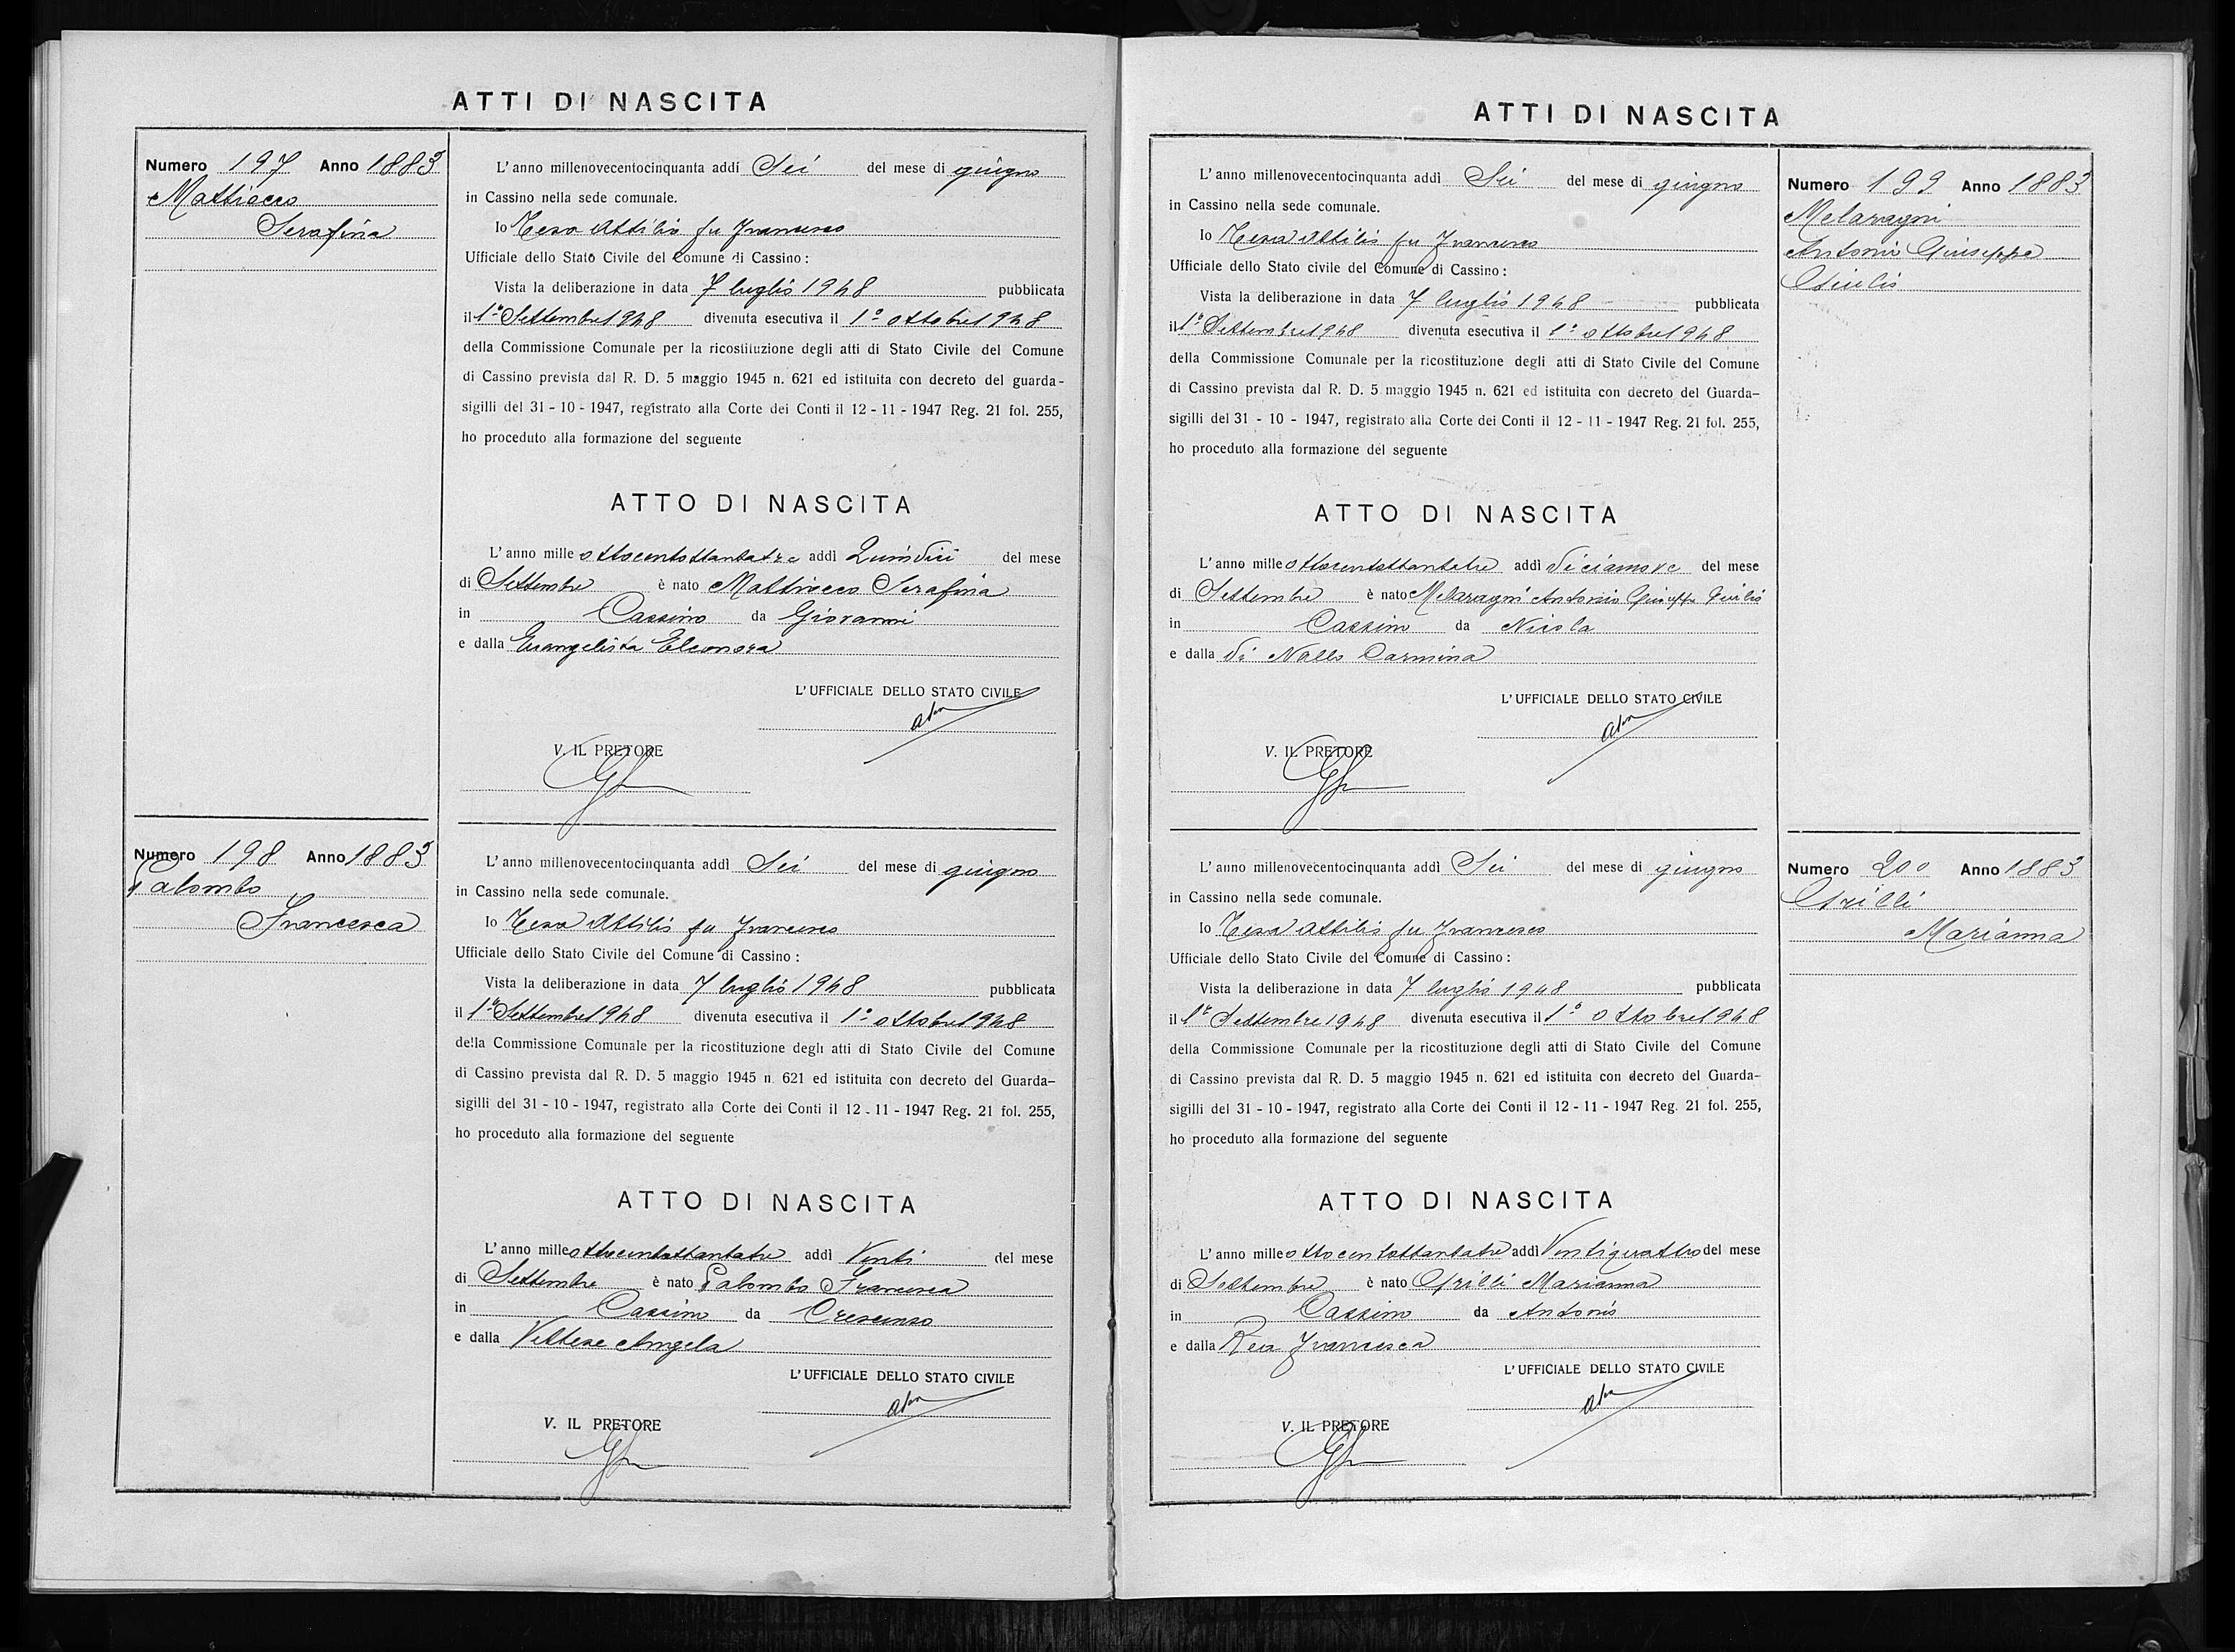 ATTI DI NASCITA
Numero 197 Anno 1883
Mattiacco
Serafina
L'anno millenovecentocinquanta addì Sei del mese di giugno
in Cassino nella sede comunale.
Io Attilio fu Francesco
Ufficiale dello Stato Civile del Comune di Cassino:
Vista la deliberazione in data 7 luglio 1948 pubblicata
il 1° Settembre 1948 divenuta esecutiva il 1° ottobre 1948
della Commissione Comunale per la ricostituzione degli atti di Stato Civile del Comune
di Cassino prevista dal R. D. 5 maggio 1945 n. 621 ed istituita con decreto del guarda-
sigilli del 31 - 10 - 1947, registrato alla Corte dei Conti il 12 - 11 - 1947 Reg. 21 fol. 255,
ho proceduto alla formazione del seguente
ATTO DI NASCITA
L'anno mille ottocentottantatre addì Quindici del mese
di Settembre è nato Mattiacco Serafina
in Cassino da Giovanni
e dalla Evangelista Eleonora
L'UFFICIALE DELLO STATO CIVILE
V. IL PRETORE
Numero 198 Anno 1883
Palombo
Francesca
L'anno millenovecentocinquanta addì Sei del mese di giugno
in Cassino nella sede comunale.
Io Attilio fu Francesco
Ufficiale dello Stato Civile del Comune di Cassino:
Vista la deliberazione in data 7 luglio 1948 pubblicata
il 1° Settembre 1948 divenuta esecutiva il 1° ottobre 1948
della Commissione Comunale per la ricostituzione degli atti di Stato Civile del Comune
di Cassino prevista dal R. D. 5 maggio 1945 n. 621 ed istituita con decreto del Guarda-
sigilli del 31 - 10 - 1947, registrato alla Corte dei Conti il 12 - 11 - 1947 Reg. 21 fol. 255,
ho proceduto alla formazione del seguente
ATTO DI NASCITA
L'anno mille ottocentottantatre addì Venti del mese
di Settembre è nato Palombo Francesca
in Cassino da Crescenzo
e dalla Vettese Angela
L'UFFICIALE DELLO STATO CIVILE
V. IL PRETORE
ATTI DI NASCITA
L'anno millenovecentocinquanta addì Sei del mese di giugno
in Cassino nella sede comunale.
Io Attilio fu Francesco
Ufficiale dello Stato civile del Comune di Cassino:
Vista la deliberazione in data 7 luglio 1948 pubblicata
il 1° Settembre 1948 divenuta esecutiva il 1° ottobre 1948
della Commissione Comunale per la ricostituzione degli atti di Stato Civile del Comune
di Cassino prevista dal R. D. 5 maggio 1945 n. 621 ed istituita con decreto del Guarda-
sigilli del 31 - 10 - 1947, registrato alla Corte dei Conti il 12 - 11 - 1947 Reg. 21 fol. 255,
ho proceduto alla formazione del seguente
ATTO DI NASCITA
L'anno mille ottocentottantatre addì diciannove del mese
di Settembre è nato Melaragni Antonio Giuseppe Giulio
in Cassino da Nicola
e dalla di Nallo Carmina
L'UFFICIALE DELLO STATO CIVILE
V. IL PRETORE
Numero 199 Anno 1883
Melaragni
Antonio Giuseppe
Giulio
L'anno millenovecentocinquanta addì Sei del mese di giugno
in Cassino nella sede comunale.
Io Attilio fu Francesco
Ufficiale dello Stato Civile del Comune di Cassino:
Vista la deliberazione in data 7 luglio 1948 pubblicata
il 1° Settembre 1948 divenuta esecutiva il 1° ottobre 1948
della Commissione Comunale per la ricostituzione degli atti di Stato Civile del Comune
di Cassino prevista dal R. D. 5 maggio 1945 n. 621 ed istituita con decreto del Guarda-
sigilli del 31 - 10 - 1947, registrato alla Corte dei Conti il 12 - 11 - 1947 Reg. 21 fol. 255,
ho proceduto alla formazione del seguente
ATTO DI NASCITA
L'anno mille ottocentottantatre addì Ventiquattro del mese
di Settembre è nato Grilli Marianna
in Cassino da Antonio
e dalla Rea Francesca
L'UFFICIALE DELLO STATO CIVILE
V. IL PRETORE
Numero 200 Anno 1883
Grilli
Marianna